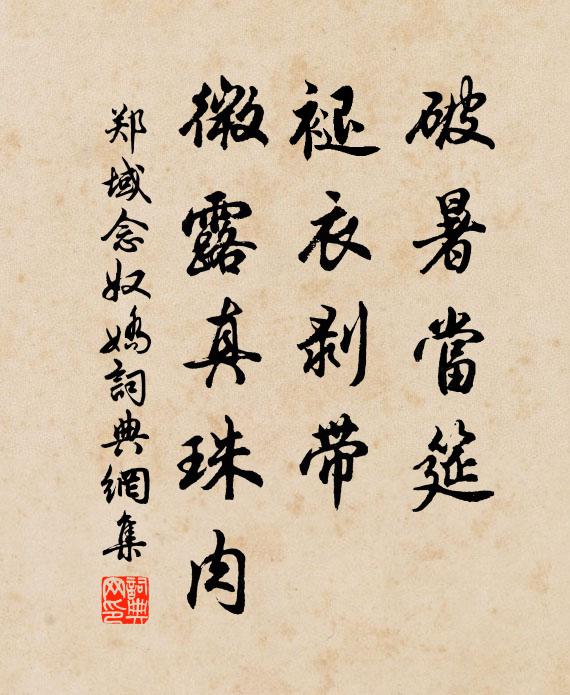 破暑當筵
褪衣剥帶
微露真珠肉
郑域念奴嬌詞典網集
詞典網印